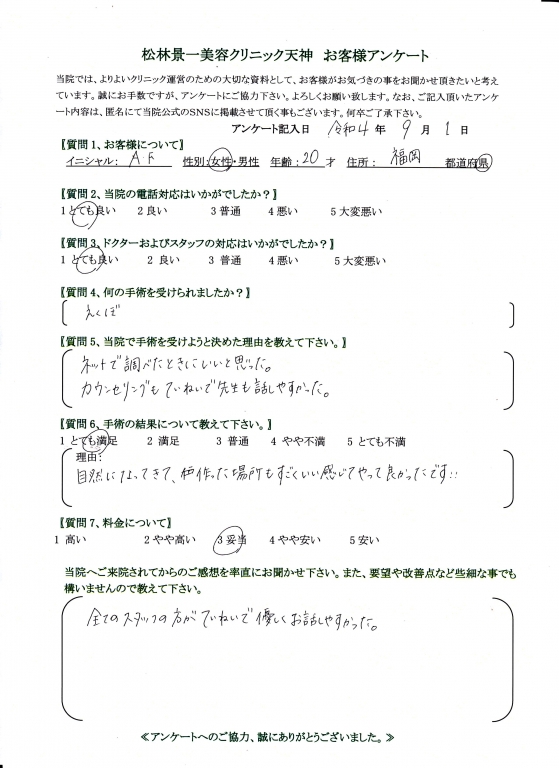 松林景一美容クリニック天神　お客様アンケート
当院では、よりよいクリニック運営のための大切な資料として、お客様がお気づきの事をお聞かせ頂きたいと考え
ています。誠にお手数ですが、アンケートにご協力下さい。よろしくお願い致します。なお、ご記入頂いたアンケ
ート内容は、匿名にて当院公式のSNSに掲載させて頂く事もございます。何卒ご了承下さい。
アンケート記入日　令和4年　9月　1日
【質問1、お客様について】
イニシャル：A F　性別：女性・男性　年齢：20才　住所：福岡　都道府県
【質問2、当院の電話対応はいかがでしたか？】
1 とても良い　2 良い　3 普通　4 悪い　5 大変悪い
【質問3、ドクターおよびスタッフの対応はいかがでしたか？】
1 とても良い　2 良い　3 普通　4 悪い　5 大変悪い
【質問4、何の手術を受けられましたか？】
えくぼ
【質問5、当院で手術を受けようと決めた理由を教えて下さい。】
ネットで調べたときにいいと思った。
カウンセリングもていねいで先生も話しやすかった。
【質問6、手術の結果について教えて下さい。】
1 とても満足　2 満足　3 普通　4 やや不満　5 とても不満
理由：
自然になってきて、作った場所もすごくいい感じでやって良かったです!!
【質問7、料金について】
1 高い　2 やや高い　3 妥当　4 やや安い　5 安い
当院へご来院されてからのご感想を率直にお聞かせ下さい。また、要望や改善点など些細な事でも
構いませんので教えて下さい。
全てのスタッフの方がていねいで優しくお話しやすかった。
≪アンケートへのご協力、誠にありがとうございました。≫